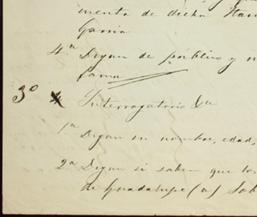 menta de dicha
Garcia
4a Digan de público y
fama
3o Interrogatorio &a
1a Digan su nombre, edad,
2a Digan si saben que los
de Guadalupe (a)